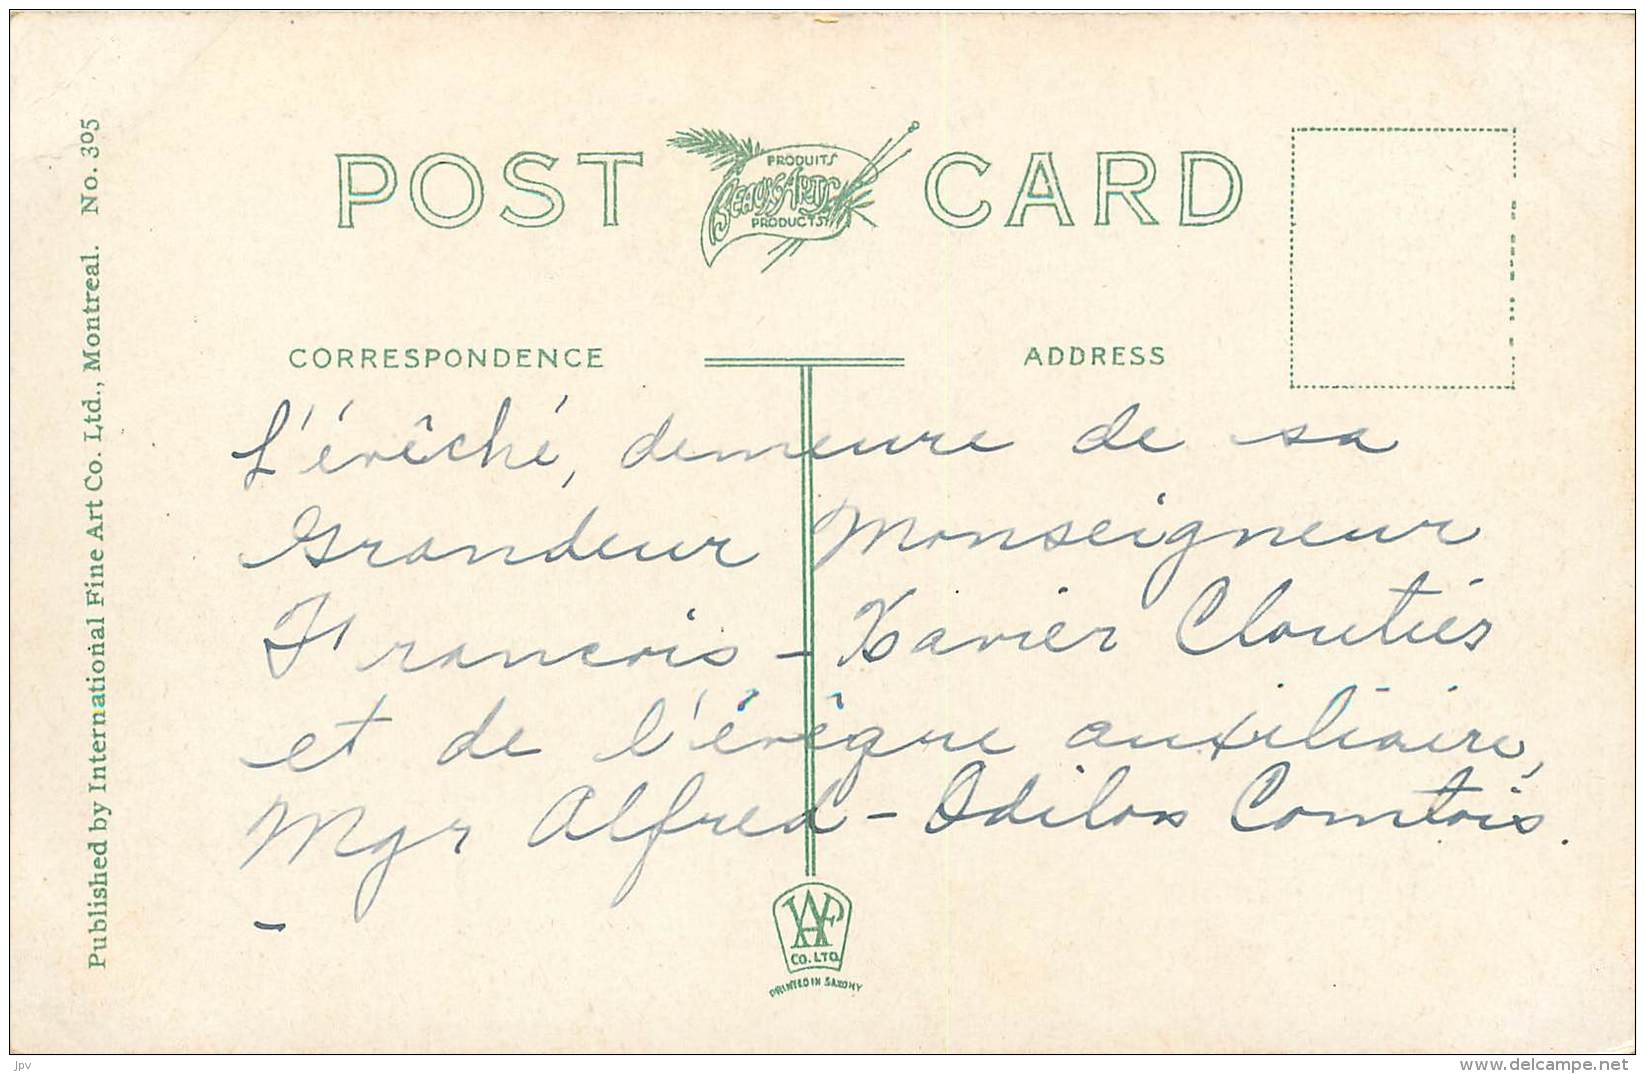 POST CARD
PRODUITS
BEAUX ARTS
PRODUCTS
CORRESPONDENCE
ADDRESS
L'évêché, demeure de sa
Grandeur Monseigneur
Francois-Xavier Cloutiér
et de l'évêque auxiliaire,
Mgr Alfred-Odilon Comtois.
-
CO. LTD.
PRINTED IN SAXONY
Published by International Fine Art Co. Ltd., Montreal. No. 305
jpv
www.delcampe.net